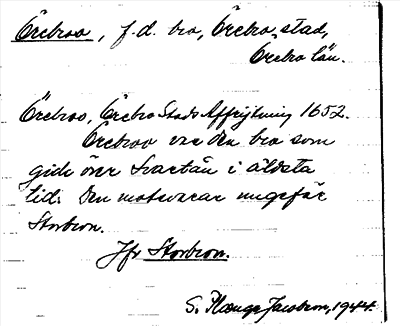 Örebroo, f.d. bro, Örebro stad,
Örebro län.
Örebroo, Örebro Stads Affrijtning 1652.
Örebroo var den bro som
gick över Svartån i äldsta
tid. Den motsvarar ungefär
Storbron.
Jfr Storbron.
S. Plaenge Jacobson, 1944.